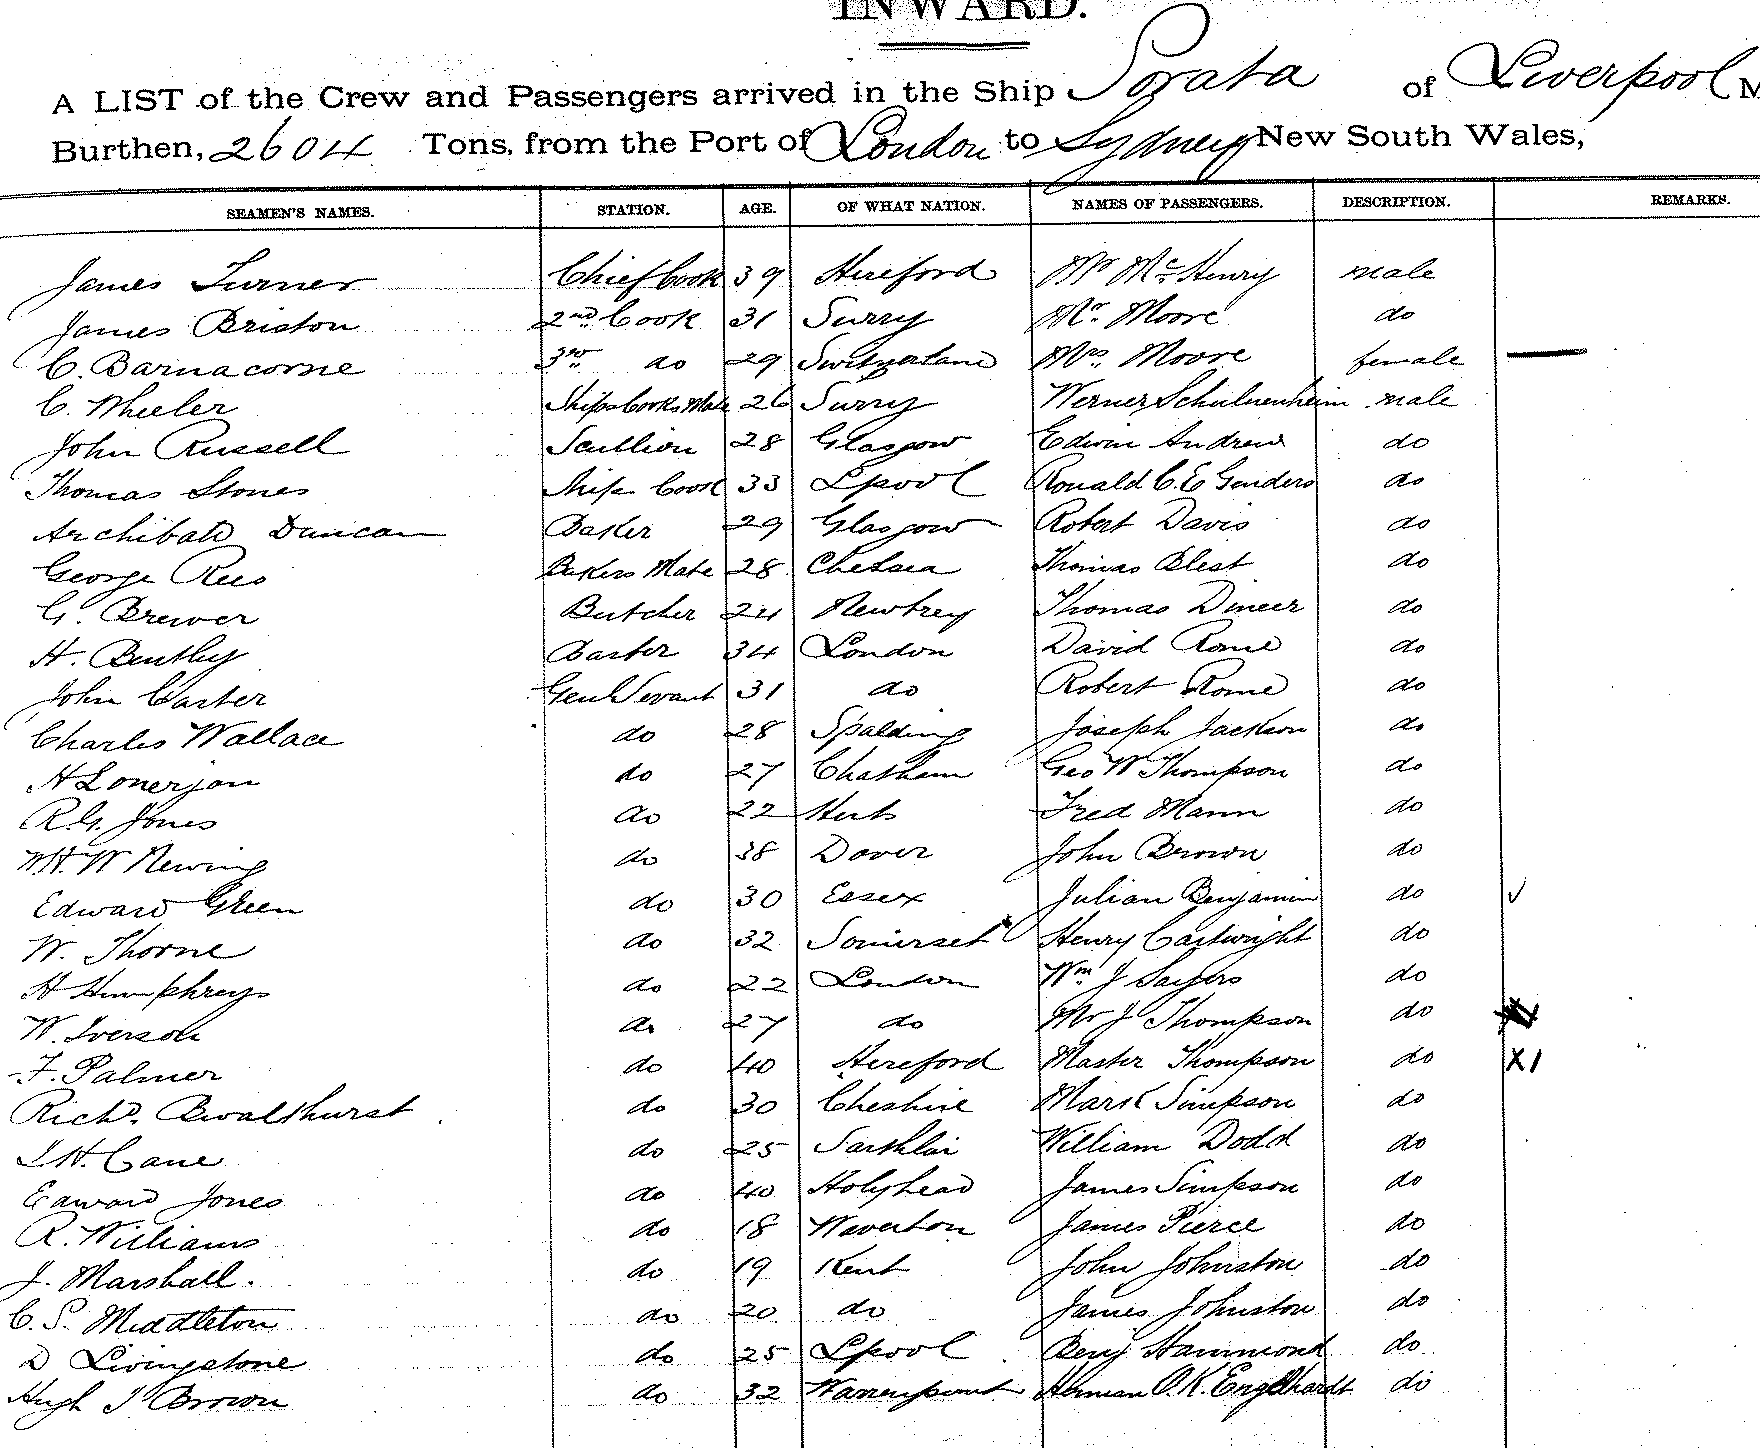 INWARD.
A LIST of the Crew and Passengers arrived in the Ship Sorata of Liverpool M
Burthen, 2604 Tons, from the Port of London to Sydney New South Wales,
SEAMEN'S NAMES. STATION. AGE. OF WHAT NATION. NAMES OF PASSENGERS. DESCRIPTION. REMARKS.
James Turner Chief Cook 39 Hereford Mr McHenry male
James Briston 2nd Cook 31 Surry Mr. Moore do
C. Barnacorne 3rd do 29 Mrs. Moore female
C. Wheeler Ships Cooks Mate 26 Surry Werner male
John Russell Scullion 28 Glasgow Edwin Andrew do
Thomas Stones Ships Cook 33 Lpool Ronald C. E Genders do
Archibald Duncan Baker 29 Glasgow Robert Davis do
George Rees Bakers Mate 28 Chelsea Thomas Blest do
G. Brewer Butcher 24 Thomas Dineer do
H. Bentley 34 London David Rome do
John Carter Genl Servant 31 do Robert Rome do
Charles Wallace do 28 Spalding Joseph Jackson do
H Lonerjan do 27 Chatham Geo W Thompson do
R. G. Jones do 22 Herts Fred Mann do
W. H. W Newing do 38 Dover John Brown do
Edward Green do 30 Essex Julian Benjamin do
W. Thorne do 32 Somerset Henry Cartwright do
H Humphreys do 22 London Wm J Sayers do
W. Iverson do 27 do Mr J Thompson do
F. Palmer do 40 Hereford Master Thompson do X1
Richd. do 30 Cheshire Mark Simpson do
J. H. Cane do 25 William Dodd do
Edward Jones do 40 Holyhead James Simpson do
R. Williams do 18 Waverton James Pierce do
J. Marshall. do 19 Kent John Johnston do
C. S. Middleton do 20 do James Johnston do
D Livingstone do 25 Lpool Benj Hammond do
Hugh J Brown do 32 Warrenpoint Herman O. K. Engelhardt do